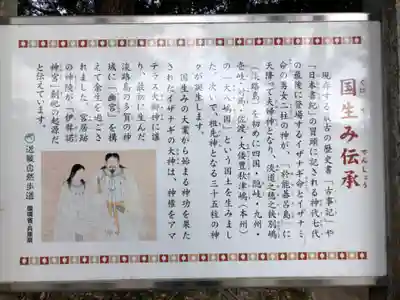 国生み伝承
くにう
でんしょう
現存する最古の歴史書「古事記」や
「日本書記」の冒頭に記される神代七代
の最後に登場するイザナギ命とイザナミ
命の男女二柱の神が、「於能碁呂島」に
天降りて夫婦神となり、淡道之穂之狭別嶋
(淡路島)を始めに四国・隠岐・九州・
壱岐・対馬・佐渡・大倭豊秋津嶋(本州)
の「大八嶋国」という国土を生みまし
た。次いで、祖先神となる三十五柱の神
々が誕生します。
国生みの大業から始まる神功を果た
されたイザナギの大神は、神権をアマ
テラス大御神に譲
り、最初に生んだ
淡路島の多賀の神
域に「幽宮」を構
えて余生を過ごさ
れました。宮居跡
の神陵が「伊弉諾
神宮」創祀の起源だ
と伝えています。
近畿自然歩道
環境省・兵庫県